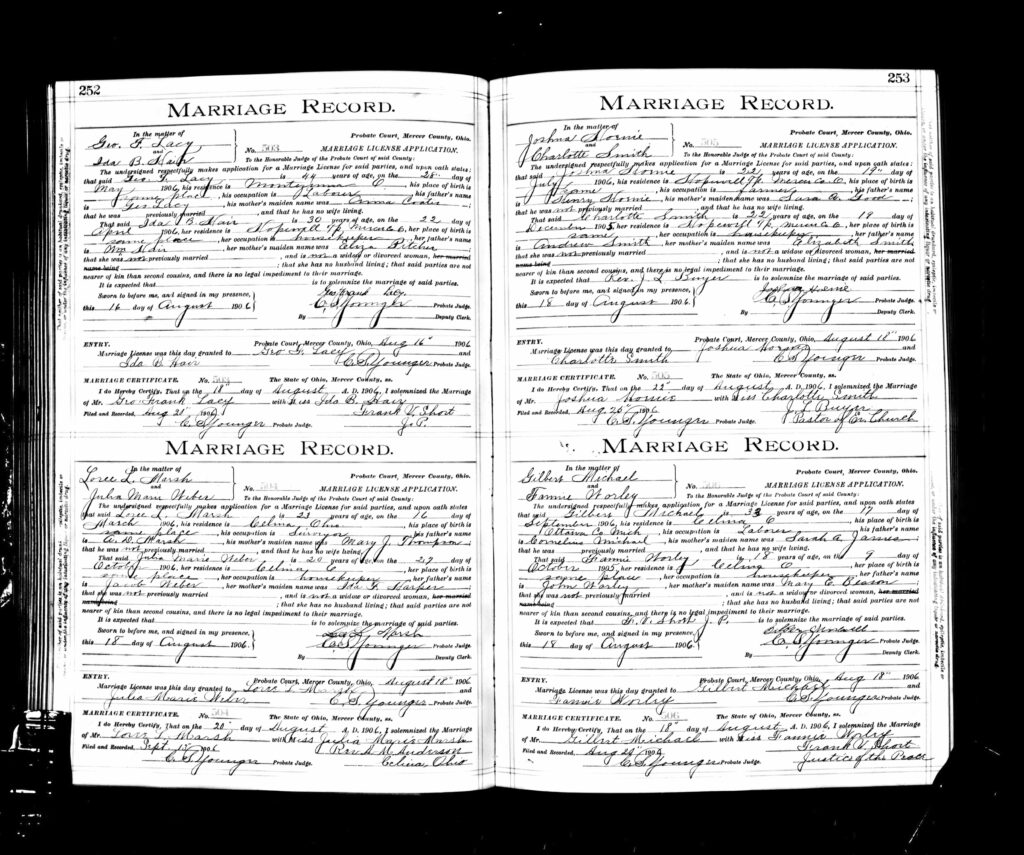 252
MARRIAGE RECORD.
In the matter of
Geo. F. Lacy
and
Ida B. Hair
Probate Court, Mercer County, Ohio.
No. 503 MARRIAGE LICENSE APPLICATION.
To the Honorable Judge of the Probate Court of said County:
The undersigned respectfully makes application for a Marriage License for said parties, and upon oath states:
that said Geo. F. Lacy is 44 years of age, on the 28" day of
May 1906, his residence is Montezuma O, his place of birth is
same place, his occupation is Laborer, his father's name
is Geo Lacy, his mother's maiden name was Emma Coats;
that he was previously married, and that he has no wife living.
That said Ida B. Hair is 30 years of age, on the 22 day of
April 1906, her residence is Hopewell Tp, Mercer Co O, her place of birth is
same place, her occupation is housekeeper, her father's name
is Wm Hair, her mother's maiden name was Eliza Pitcher
that she was not previously married, and is not a widow or divorced woman, her married
name being ; that she has no husband living; that said parties are not
nearer of kin than second cousins, and there is no legal impediment to their marriage.
It is expected that is to solemnize the marriage of said parties.
Sworn to before me, and signed in my presence,
this 16 day of August 1906
Geo Frank Lacy
C. S. Younger Probate Judge.
By Deputy Clerk.
ENTRY. Probate Court, Mercer County, Ohio, Aug 16" 1906
Marriage License was this day granted to Geo F. Lacy and
Ida B. Hair C. S. Younger Probate Judge.
MARRIAGE CERTIFICATE. No. 503 The State of Ohio, Mercer County, ss.
I do Hereby Certify, That on the 18" day of August A. D. 1906, I solemnized the Marriage
of Mr. Geo. Frank Lacy with Miss Ida B. Hair
Filed and Recorded, Aug 21" 1906 Frank V. Short
C. S. Younger Probate Judge. J. P.
MARRIAGE RECORD.
In the matter of
Loree L. Marsh
and
Julia Marie Weber
Probate Court, Mercer County, Ohio.
No. 504 MARRIAGE LICENSE APPLICATION.
To the Honorable Judge of the Probate Court of said County:
The undersigned respectfully makes application for a Marriage License for said parties, and upon oath states
that said Loree L. Marsh is 21 years of age, on the 16 day of
March 1906, his residence is Celina, Ohio, his place of birth is
same place, his occupation is Surveyor, his father's name
is Marsh, his mother's maiden name was Mary J. Thompson
that he was not previously married, and that he has no wife living.
That said Julia Marie Weber is 20 years of age, on the 27 day of
October 1906, her residence is Celina, O, her place of birth is
same place, her occupation is housekeeper, her father's name
is Jacob Weber, her mother's maiden name was Ida F. Harper
that she was not previously married, and is not a widow or divorced woman, her married
name being ; that she has no husband living; that said parties are not
nearer of kin than second cousins, and there is no legal impediment to their marriage.
It is expected that is to solemnize the marriage of said parties.
Sworn to before me, and signed in my presence,
this 18 day of August 1906.
Marsh
C. S. Younger Probate Judge.
By Deputy Clerk.
ENTRY. Probate Court, Mercer County, Ohio, August 18" 1906
Marriage License was this day granted to Loree L. Marsh and
Julia Marie Weber C. S. Younger Probate Judge.
MARRIAGE CERTIFICATE. No. 504 The State of Ohio, Mercer County, ss.
I do Hereby Certify, That on the 28" day of August A. D. 1906, I solemnized the Marriage
of Mr. Loree L. Marsh with Miss Julia Marie Marsh
Filed and Recorded, Sept. 1906 Rev. Anderson
C. S. Younger Probate Judge. Celina, Ohio
253
MARRIAGE RECORD.
In the matter of
Joshua
and
Charlotte Smith
Probate Court, Mercer County, Ohio.
No. 505 MARRIAGE LICENSE APPLICATION.
To the Honorable Judge of the Probate Court of said County:
The undersigned respectfully makes application for a Marriage License for said parties, and upon oath states:
that said Joshua is 22 years of age, on the day of
July 1906, his residence is Hopewell Tp. Mercer Co. O, his place of birth is
same, his occupation is farmer, his father's name
is Henry, his mother's maiden name was Sara Good;
that he was not previously married, and that he has no wife living.
That said Charlotte Smith is 22 years of age, on the 18 day of
December 1905, her residence is Hopewell Tp. Mercer Co O, her place of birth is
same, her occupation is housekeeper, her father's name
is Andrew Smith, her mother's maiden name was Elizabeth Smith
that she was not previously married, and is not a widow or divorced woman, her married
name being ; that she has no husband living; that said parties are not
nearer of kin than second cousins, and there is no legal impediment to their marriage.
It is expected that Rev. J. L. Buyer is to solemnize the marriage of said parties.
Sworn to before me, and signed in my presence,
this 18 day of August 1906
C. S. Younger Probate Judge.
By Deputy Clerk.
ENTRY. Probate Court, Mercer County, Ohio, August 18" 1906
Marriage License was this day granted to Joshua and
Charlotte Smith C. S. Younger Probate Judge.
MARRIAGE CERTIFICATE. No. 505 The State of Ohio, Mercer County, ss.
I do Hereby Certify, That on the 22" day of August A. D. 1906, I solemnized the Marriage
of Mr. Joshua with Miss Charlotte Smith
Filed and Recorded, Aug 28" 1906 J. L. Buyer
C. S. Younger Probate Judge. Pastor of Ev. Church
MARRIAGE RECORD.
In the matter of
Gilbert Michael
and
Fannie Worley
Probate Court, Mercer County, Ohio.
No. 506 MARRIAGE LICENSE APPLICATION.
To the Honorable Judge of the Probate Court of said County:
The undersigned respectfully makes application for a Marriage License for said parties, and upon oath states
that said Gilbert Michael is 33 years of age, on the 17 day of
September 1906, his residence is Celina O, his place of birth is
Ottawa Co. Mich, his occupation is Laborer, his father's name
is Cornelius Michael, his mother's maiden name was Sarah A. James
that he was previously married, and that he has no wife living.
That said Fannie Worley is 18 years of age, on the 9 day of
October 1905, her residence is Celina O, her place of birth is
same place, her occupation is housekeeper, her father's name
is John Worley, her mother's maiden name was Mary E. Beason
that she was not previously married, and is not a widow or divorced woman, her married
name being ; that she has no husband living; that said parties are not
nearer of kin than second cousins, and there is no legal impediment to their marriage.
It is expected that F. V. Short J. P. is to solemnize the marriage of said parties.
Sworn to before me, and signed in my presence,
this 18 day of August 1906
C. S. Younger Probate Judge.
By Deputy Clerk.
ENTRY. Probate Court, Mercer County, Ohio, Aug 18" 1906
Marriage License was this day granted to Gilbert Michael and
Fannie Worley C. S. Younger Probate Judge.
MARRIAGE CERTIFICATE. No. 506 The State of Ohio, Mercer County, ss.
I do Hereby Certify, That on the 18" day of August A. D. 1906, I solemnized the Marriage
of Mr. Gilbert Michael with Miss Fannie Worley
Filed and Recorded, Aug 20" 1906 Frank V. Short
C. S. Younger Probate Judge. Justice of the Peace